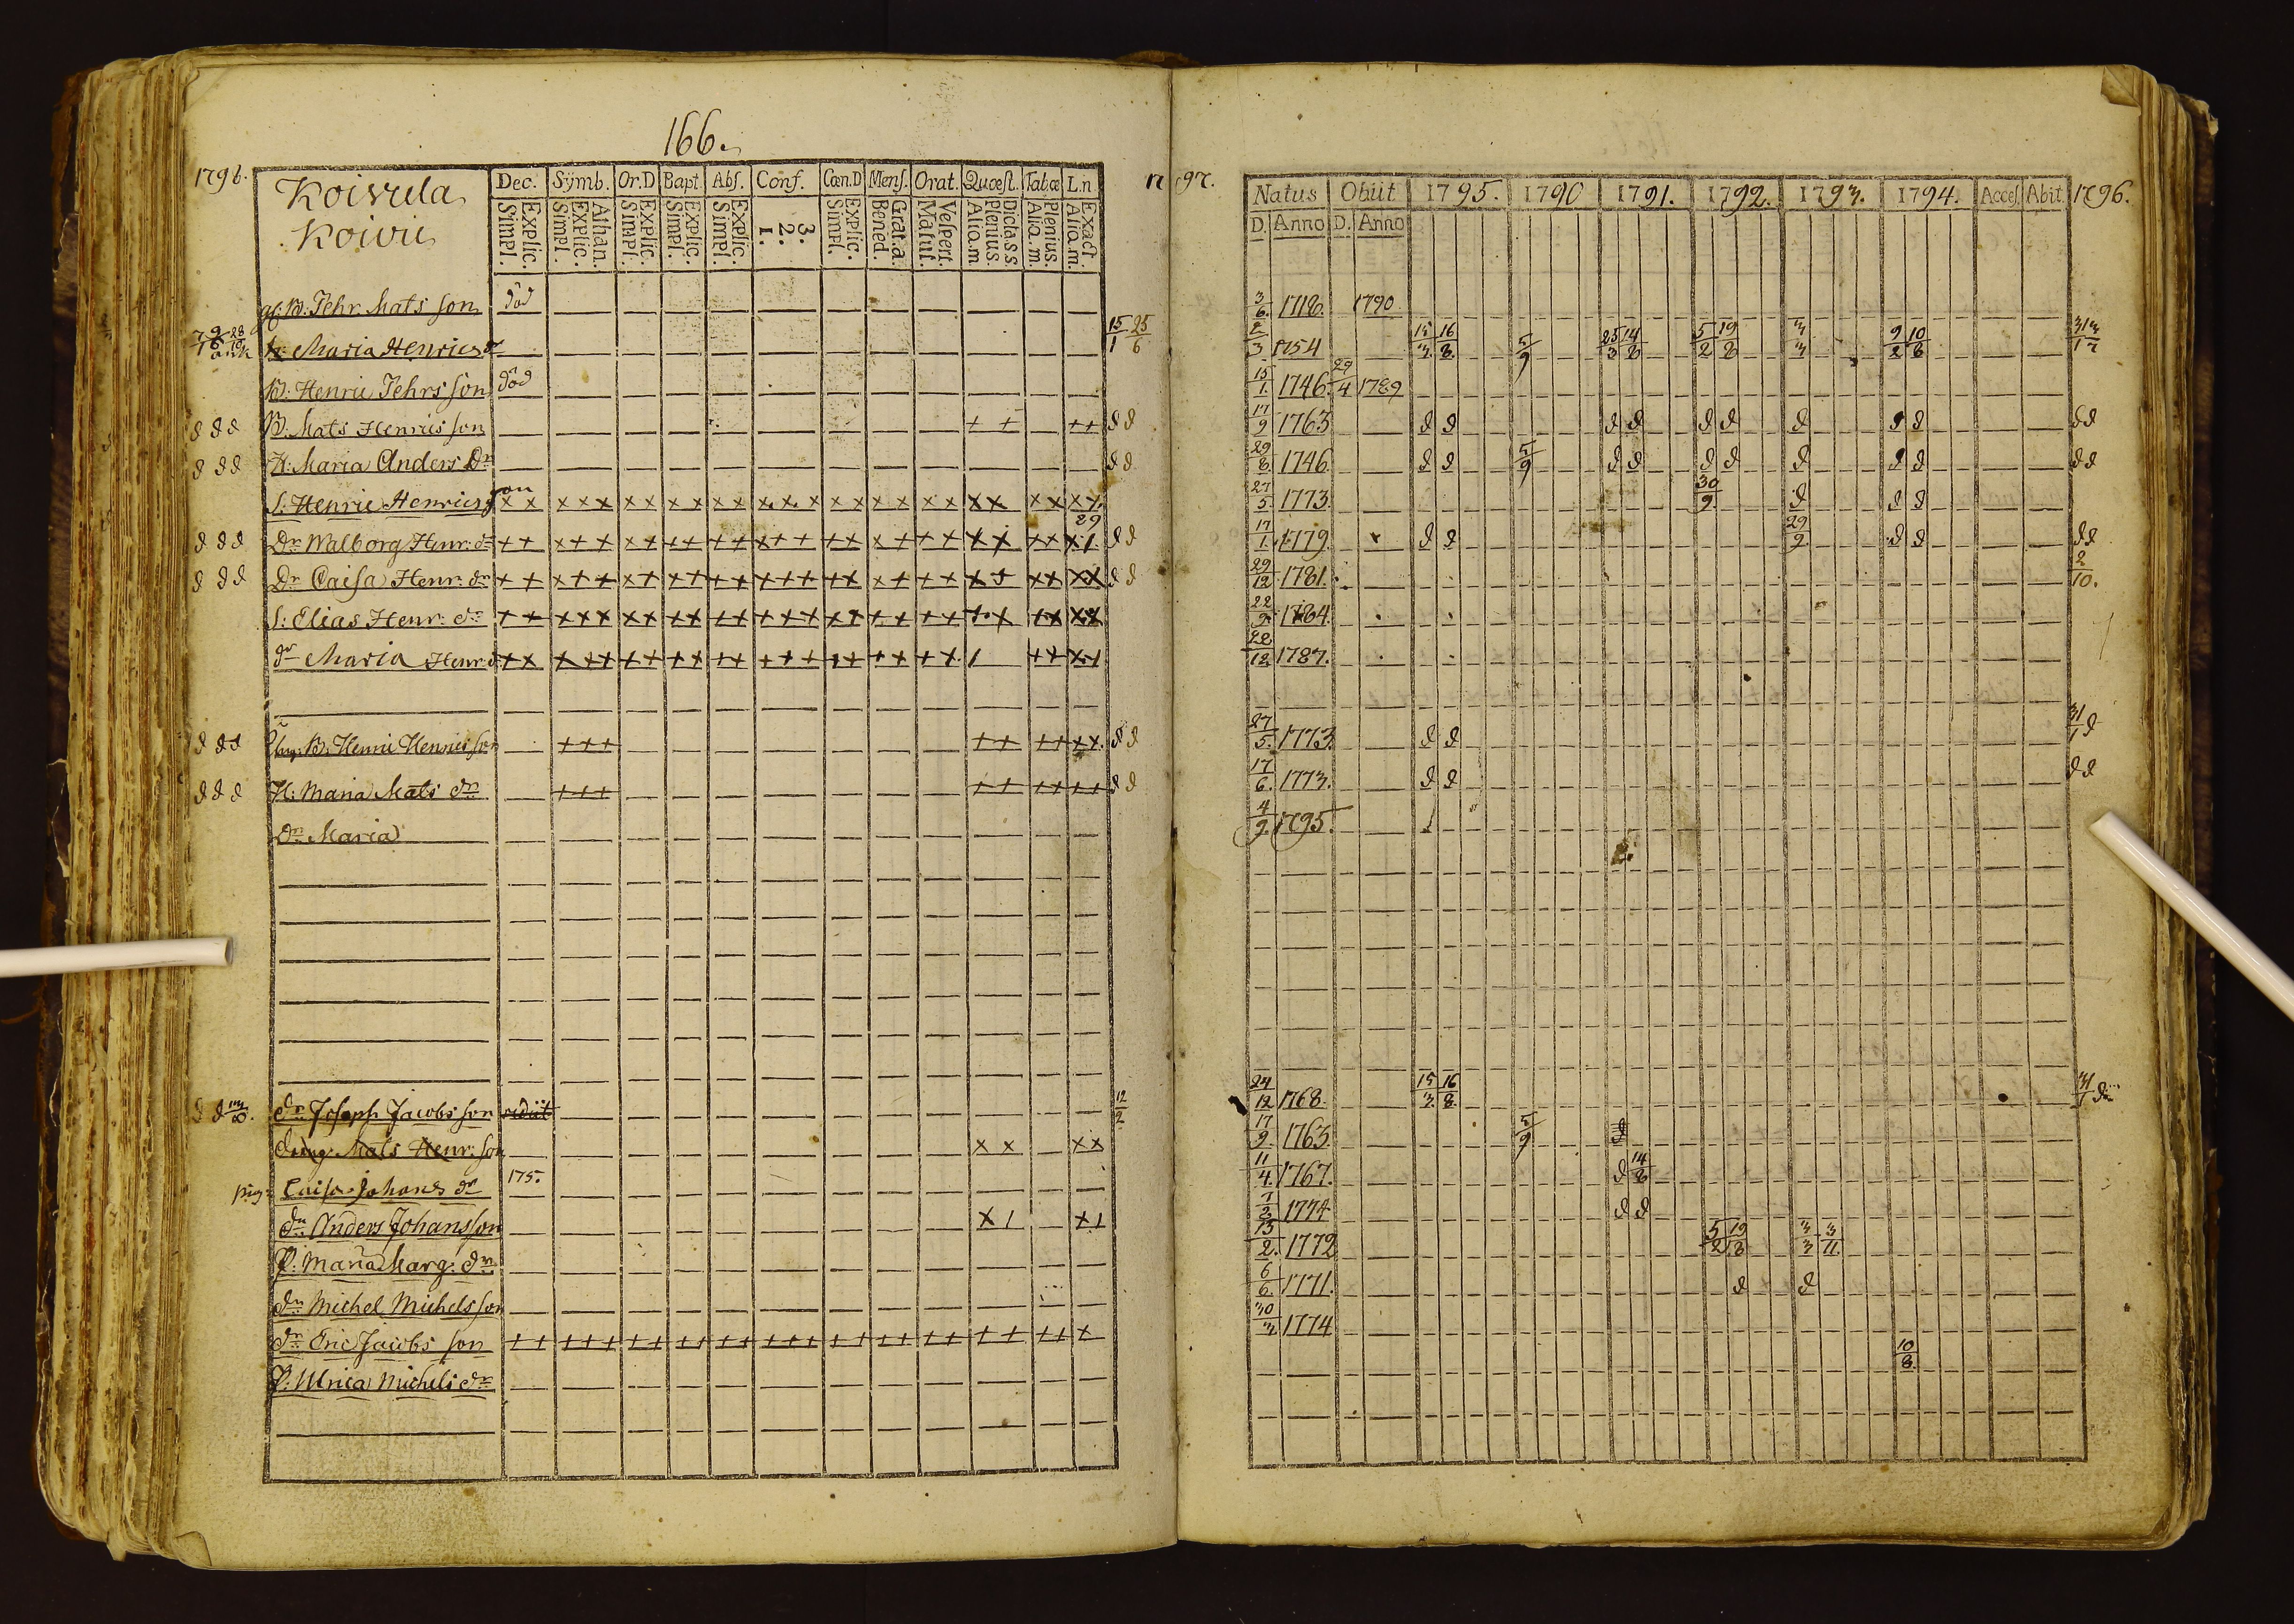 166.
1798.
Koivula
Koivu
Dec. Symb. Or.D Bapt. Abs. Conf. Cœn.D Mens. Orat. Quæst. Tab.œ L.n
Simpl. Explic. Simpl. Explic. Athan. Simpl. Explic. Simpl. Explic. Simpl. Explic. 1. 2. 3. Simpl. Explic. Bened. Grat.a. Matut. Vespert. Aliq.m. Plenius. Dicta.s s. Aliq.m. Plenius. Aliq.m. Exact
B: Jehr. Mats son död
Maria Henrics dr 15/1 25/6
B: Henric Jehrs son död
d d d B: Mats Henrics son + + ++ d d
d d d H: Maria Anders Dr d d
S: Henric Henrics son x x x x x x x x x x x x x x x x x x x x x x x x x x
29
d d d Dr Walborg Henr: dr ++ +++ ++ ++ ++ +++ ++ ++ ++ xx ++ x1 d d
d d d Dr Caisa Henr: dr ++ +++ ++ ++ ++ +++ ++ ++ ++ ++ ++ xx d d
S: Elias Henr: dr ++ xxx xx ++ ++ +++ ++ ++ ++ ++ ++ xx
dr Maria Henr: d ++ +++ ++ ++ ++ +++ ++ ++ ++ 1 ++ x1
d d d B: Henric Henrics son +++ ++ ++ ++ d d
d d d H: Maria Mats dr +++ ++ ++ ++ d d
Dr Maria
d d dr Joseph Jacobs son 12/2
dräng Mats Henr: son x x x x
pig: Caisa Johans dr 175.
dr Anders Johansson x 1 x 1
P: Maria Marg: dr
dr Michel Michelsson
dr Eric Jacobs son ++ +++ ++ ++ ++ +++ ++ ++ ++ ++ ++ +
P: Ulrica Michels dr
1797.
Natus Obiit 1795. 1790 1791. 1792. 1793. 1794. Acces. Abit 1796.
D. Anno D. Anno
3/6. 1718. 1790
2/3 1754 15/3 16/8 5/9 25/3 14/8 5/2 19/8 3/3 9/2 10/8
15/1. 1746. 29/4 1789
17/9 1763 d d d d d d d d d d d
29/8 1746. d d 5/9 d d d d d d d d d
27/5. 1773. 30/9. d d d
17/1. 1779. d d 29/9. d d d d
29/12 1781. 2/10.
22/9. 1784.
22/12 1787.
27/5. 1773. d d 31/1 d
17/6. 1773. d d d d
4/9 1795.
24/12 1768. 15/3. 16/8.
17/9. 1763 5/9 d
11/4. 1767. d 14/8
1774 d d
13/2. 1772 5/2 19/8 3/3 3/11.
6/6. 1771. d d
30/3 1774
10/8.